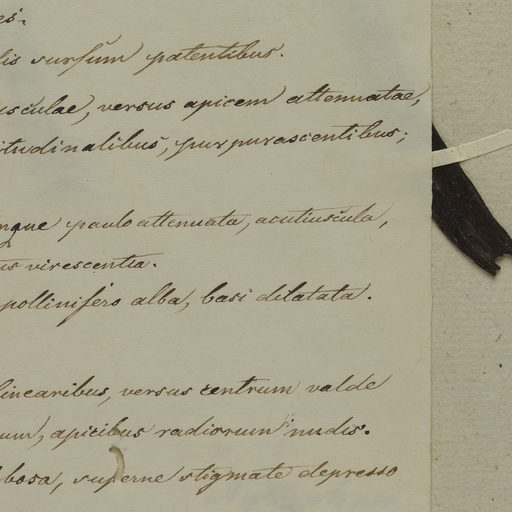 es.
lis sursum patentibus.
usculae, versus apicem attenuatae,
itudinalibus, purpurascentibus;
nque paulo attenuata, acutiuscula,
us virescentia.
pollinifero alba, basi dilatata.
linearibus, versus centrum valde
um), apicibus radiorum nudis.
bosa, superne stigmate depresso